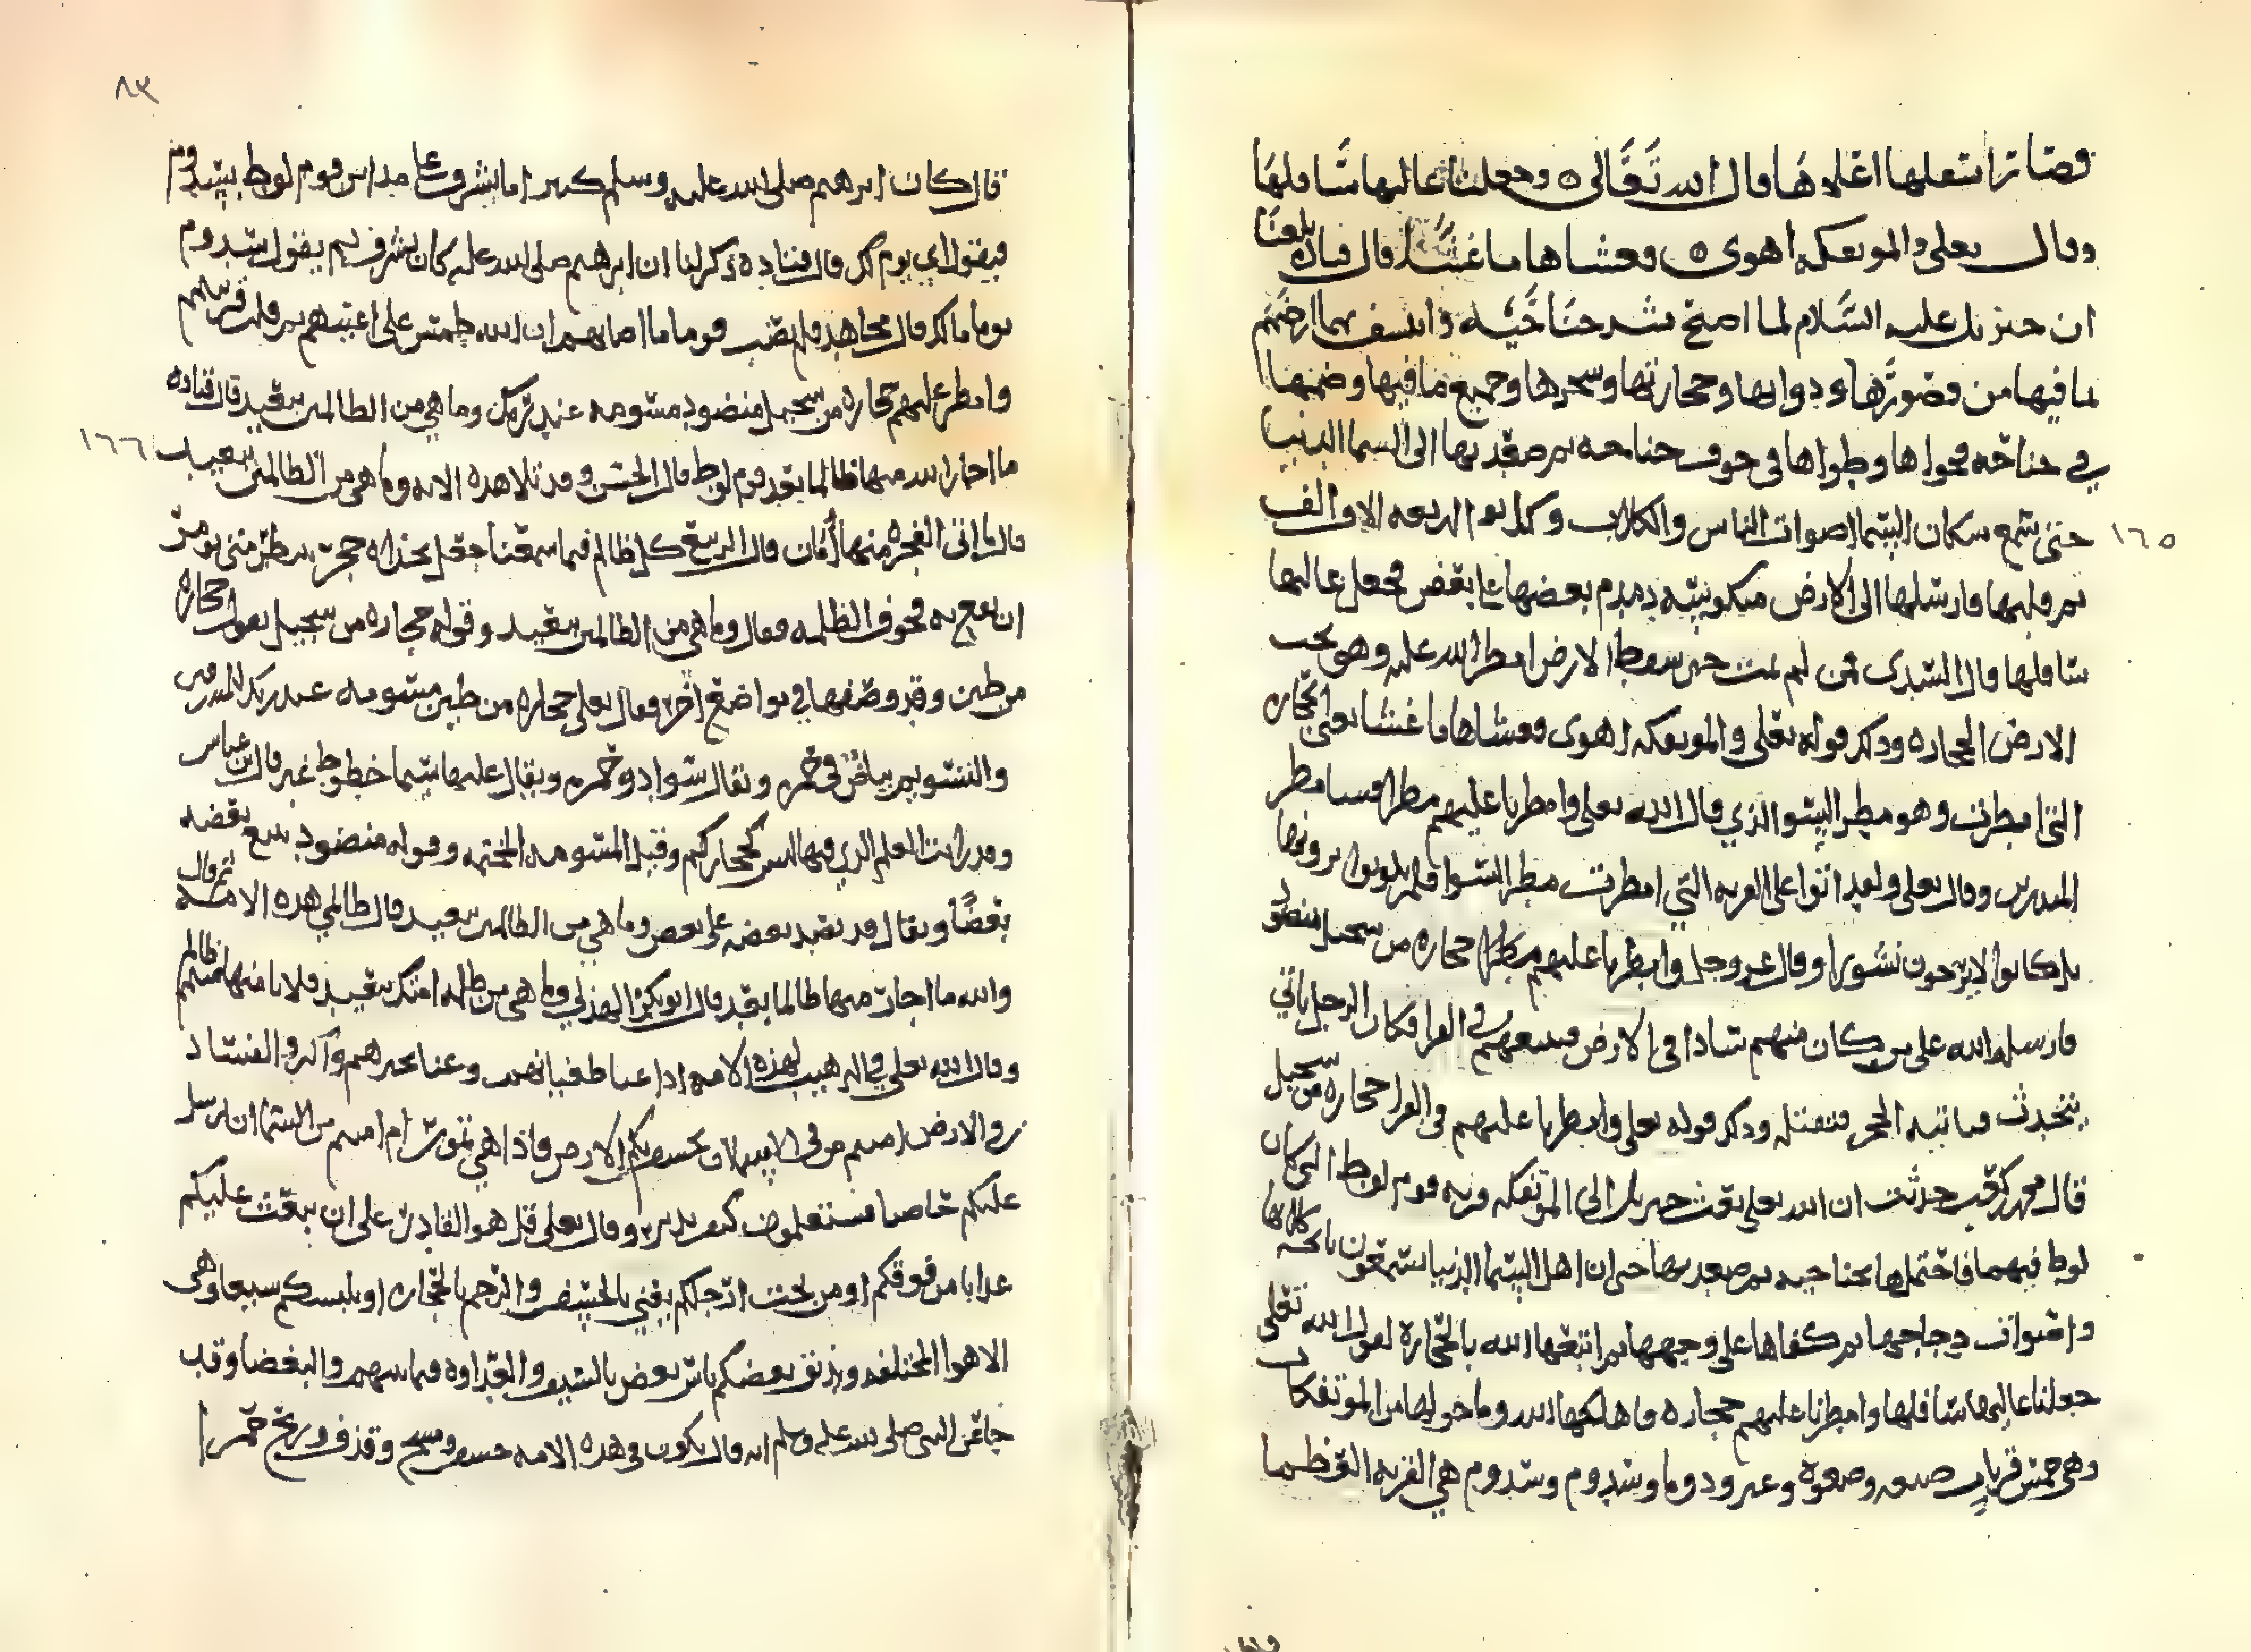 فصار اسفلها اعلاها قال الله تعالى وجعلنا عاليها سافلها
وقال تعلى والموتفكه اهوى فغشاها ما غشا قال قتاده بلغنا
ان جبريل عليه السلام لما اصبح نشر جناحيه وانتسف بها ارضهم
بما فيها من قصورها ودوابها وحجارتها وشجرها وجميع ما فيها وضمها
في جناحه فحواها وطواها في جوف جناحه ثم صعد بها الى السما الدنيا
حتى سمع سكان السما اصوات الناس والكلاب وكانوا اربعه الاف الف
ثم قلبها فارسلها الى الارض منكوسه دمدم بعضها على بعض فجعل عاليها
سافلها قال السدى فمن لم يمت حين سقط الارض امطر الله عليه وهو تحت
الارض الحجاره وذكر قوله تعلى والموتفكه اهوى فغشاها ما غشا يعنى الحجاره
التى امطرت وهو مطر السو الذي قال الله تعلى وامطرنا عليهم مطرا فسا مطر
المنذرين وقال تعلى ولقد اتوا على القريه التي امطرت مطر السوا فلم يكونوا يرونها
بل كانوا لا يرجون نشورا وقال عز وجل وامطرنا عليهم مطرا حجاره من سجيل منضود
فارسله الله على من كان منهم شاذا في الارض فتتبعهم في القرا فكان الرجل ياتي
يتحدث فياتيه الحجر فتقتله وذكر قوله تعلى وامطرنا عليهم في القرا حجاره من سجيل
قال محمد بن كعب حدثت ان الله تعلى بعث جبريل الى الموتفكه قريه قوم لوط التى كان
لوط فيهم فاحتملها بجناحيه ثم صعد بها حتى ان اهل السما الدنيا يسمعون نابحه كلابها
واصوات دجاجها ثم كفاها على وجهها ثم اتبعها الله بالحجاره لقول الله تعلى
جعلنا عاليها سافلها وامطرنا عليهم حجاره فاهلكها الله وما حولها من الموتفكات
وهي خمس قريات صبعه وصعوه وعمر ودوما وسدوم وسدوم هي القريه العظما
١٦٥
٨٣
قال كان ابرهيم صلى الله عليه وسلم كثيرا ما يشرف على مداين قوم لوط بسدوم
فيقول اي يوم لك قال قتاده ذكر لنا ان ابرهيم صلى الله عليه كان يشرف ثم يقول سدوم
يوما ما لك قال مجاهد فلم يصب قوما ما اصابهم ان الله طمس على اعينهم ثم قلب قريتهم
وامطر عليهم حجاره من سجيل منضود مسومه عند ربك وما هي من الظالمين ببعيد قال قتاده
ما اجار الله منها ظالما بعد قوم لوط قال الحسن وقد تلا هذه الايه وما هي من الظالمين ببعيد
قال ما اتى الفجره منها امان قال الربيع كل ظالم فيما سمعنا جعل بحذاه حجر ينتظر متى يومر
ان يقع به فخوف الظلمه فقال وما هي من الظالمين ببعيد وقوله حجاره من سجيل يقول حجاره
من طين وقد وصفها في مواضع اخر فقال تعلى حجاره من طين مسومه عند ربك للمسرفين
والتسويم بياض في حمره ويقال سواد وحمره ويقال عليها سيما خطوط غبر قال بن عباس
وقد رايت العلم الذي فيها ليس كحجارتكم وقيل المسومه المختمه وقوله منضود يتبع بعضه
بعضا ويقال قد نضد بعضه على بعض وما هي من الظالمين ببعيد قال ظالمي هذه الامه ثم قال
والله ما اجارت منها ظالما بعد قال ابو بكر الهذلي وما هي من ظلمه امتك ببعيد فلا يامنها منهم ظالم
وقال الله تعلى في الترهيب لهذه الامه
في الارض
عليكم حاصبا فستعلمون كيف نذير وقال تعلى قل هو القادر على ان يبعث عليكم
عذابا من فوقكم او من تحت ارجلكم يعني بالخسف والرجم بالحجاره او يلبسكم شيعا وهى
الاهوا المختلفه ويذيق بعضكم باس بعض بالسيف والعداوه فيما بينهم والبغضا وقد
جا عن النبي صلى الله عليه وسلم انه قال يكون في هذه الامه خسف ومسخ وقذف وريح حمرا
١٦٦